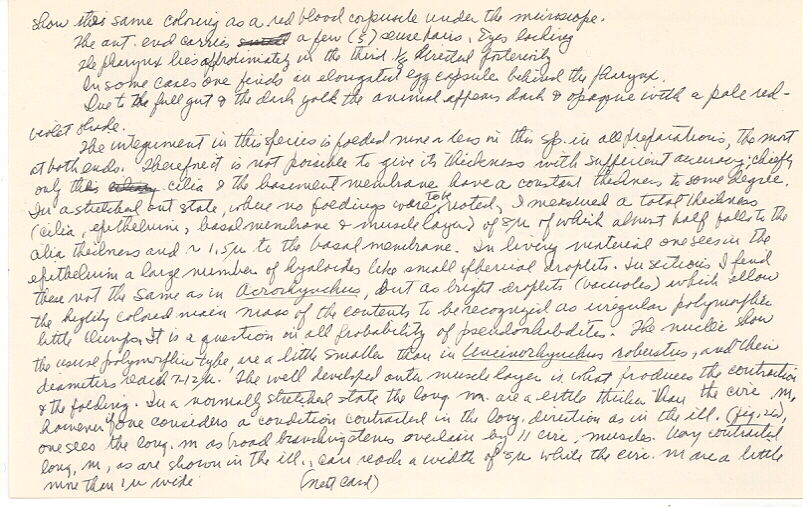 show this same coloring as a red blood corpuscle under the microscope.
The ant. end carries a few (5) sense hairs. Eyes lacking
The pharynx lies approximately in the third 1/3 directed posteriorly
In some cases one finds an elongated egg capsule behind the pharynx.
Due to the full gut & the dark yolk the animal appears dark & opaque with a pale red-
violet shade.
The integument in this species is folded more or less in this sp. in all preparations, the most
at both ends. Therefore it is not possible to give its thickness with sufficient accuracy; chiefly
only the cilia & the basement membrane have a constant thickness to some degree.
In a stretched out state, where no foldings were to be noted, I measured a total thickness
(cilia, epithelium, basal membrane & muscle layer) of 8µ of which almost half falls to the
cilia thickness and ~ 1,5µ to the basal membrane. In living material one sees in the
epithelium a large number of hyaloides like small spherical droplets. In sections I find
these not the same as in Acrorhynchus, but as bright droplets (vacuoles) which allow
the highly colored main mass of the contents to be recognized as irregular polymorphic
little clumps. It is a question in all probability of pseudorhabdites. The nuclei show
the usual polymorphic type, are a little smaller than in Uncinorhynchus robustus, and their
diameters reach 7-12µ. The well developed outer muscle layer is what produces the contraction
& the folding. In a normally stretched state the long. m. are a little thicker than the circ. m,
however if one considers a condition contracted in the long. direction as in the ill. (fig. 22),
one sees the long. m as broad branching stems overlain by || circ. muscles. Very contracted
long. m, as are shown in the ill., can reach a width of 8µ while the circ. m are a little
more than 1µ wide (next card)